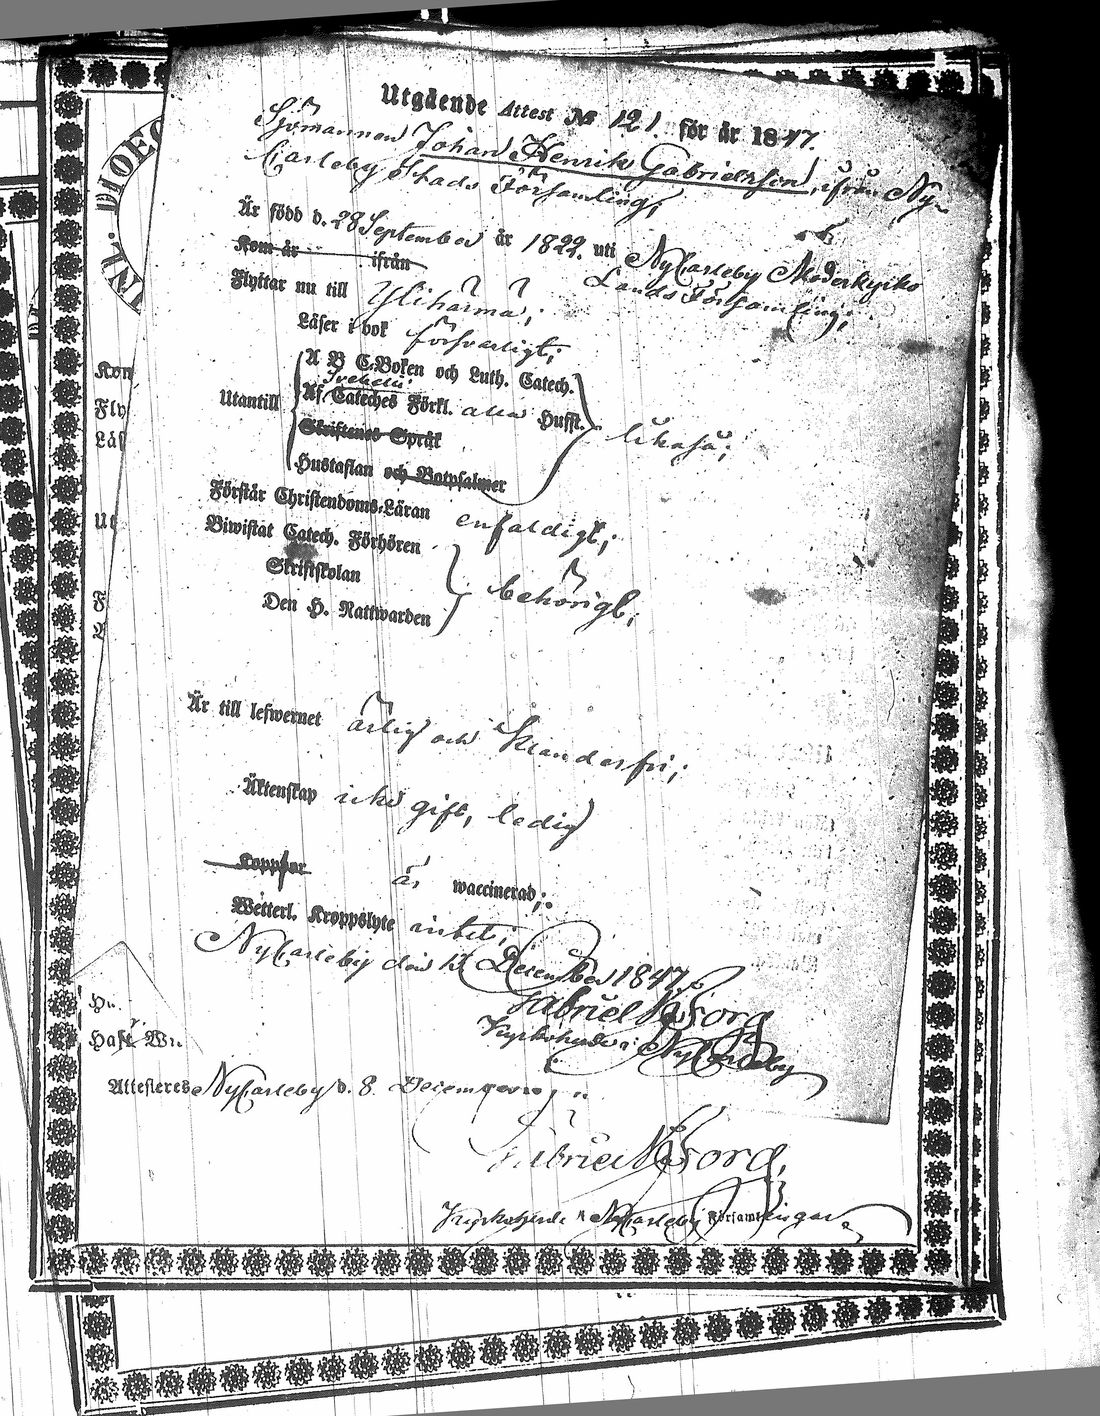 Utgående Attest № 121. för år 1847.
Sjömannen Johan Henrik Gabrielsson, ifrån Ny-
Carleby Stads Församling,
Är född d. 28 September år 1822. uti NyCarleby Moderkyrko
Kom år ifrån Lands Församling;
Flyttar nu till Ylihärmä;
Läser i bok försvarligt;
A B C-Boken och Luth. Catech.
Svebelii
Utantill Af Cateches Förkl. alla Husft. likaså;
Skriftenes Språk
Hustaflan och Botpsalmer
Förstår Christendoms-Läran enfaldigt;
Biwistat Catech. Förhören
Skriftskolan behörigt;
Den H. Nattwarden
Är till lefwernet ärlig och klanderfri;
Äktenskap icke gift, ledig
Koppor är waccinerad;
Wetterl. Kroppslyte intet;
NyCarleby den December 1847.
Gabriel
Kyrkoherde i NyCarleby
INL. DIOEC
Kom
Fly
Läs
Ut
F
Attesteras NyCarleby d. 8. December
Gabriel
Kyrkoherde i NyCarleby Församlingar